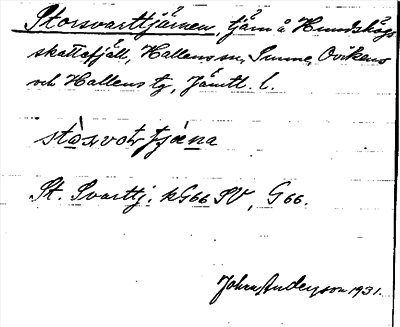 Storsvarttjärnen, tjärn å Hundshögs
skattefjäll, Hallens sn, Sunne, Ovikens
och Hallens tg, Jämtl. l.
stòsvotr tjǽna
St. Svarttj. kG66 SV, G66.
Johan Anderson 1931.